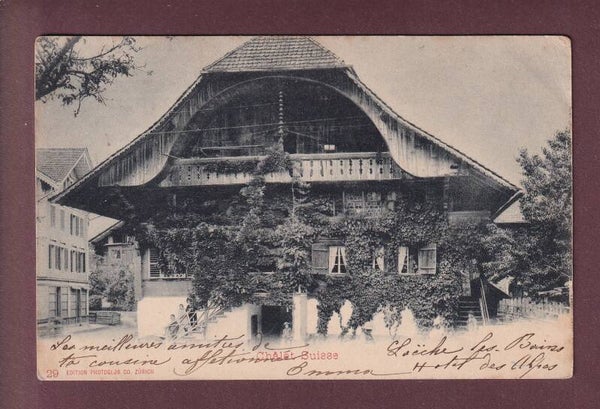 Les meilleures amitiés de
ta cousine affectionnée
Emma
Loëche-les-Bains
Hotel des Alpes
Châlet Suisse
29 EDITION PHOTOGLOB CO. ZÜRICH